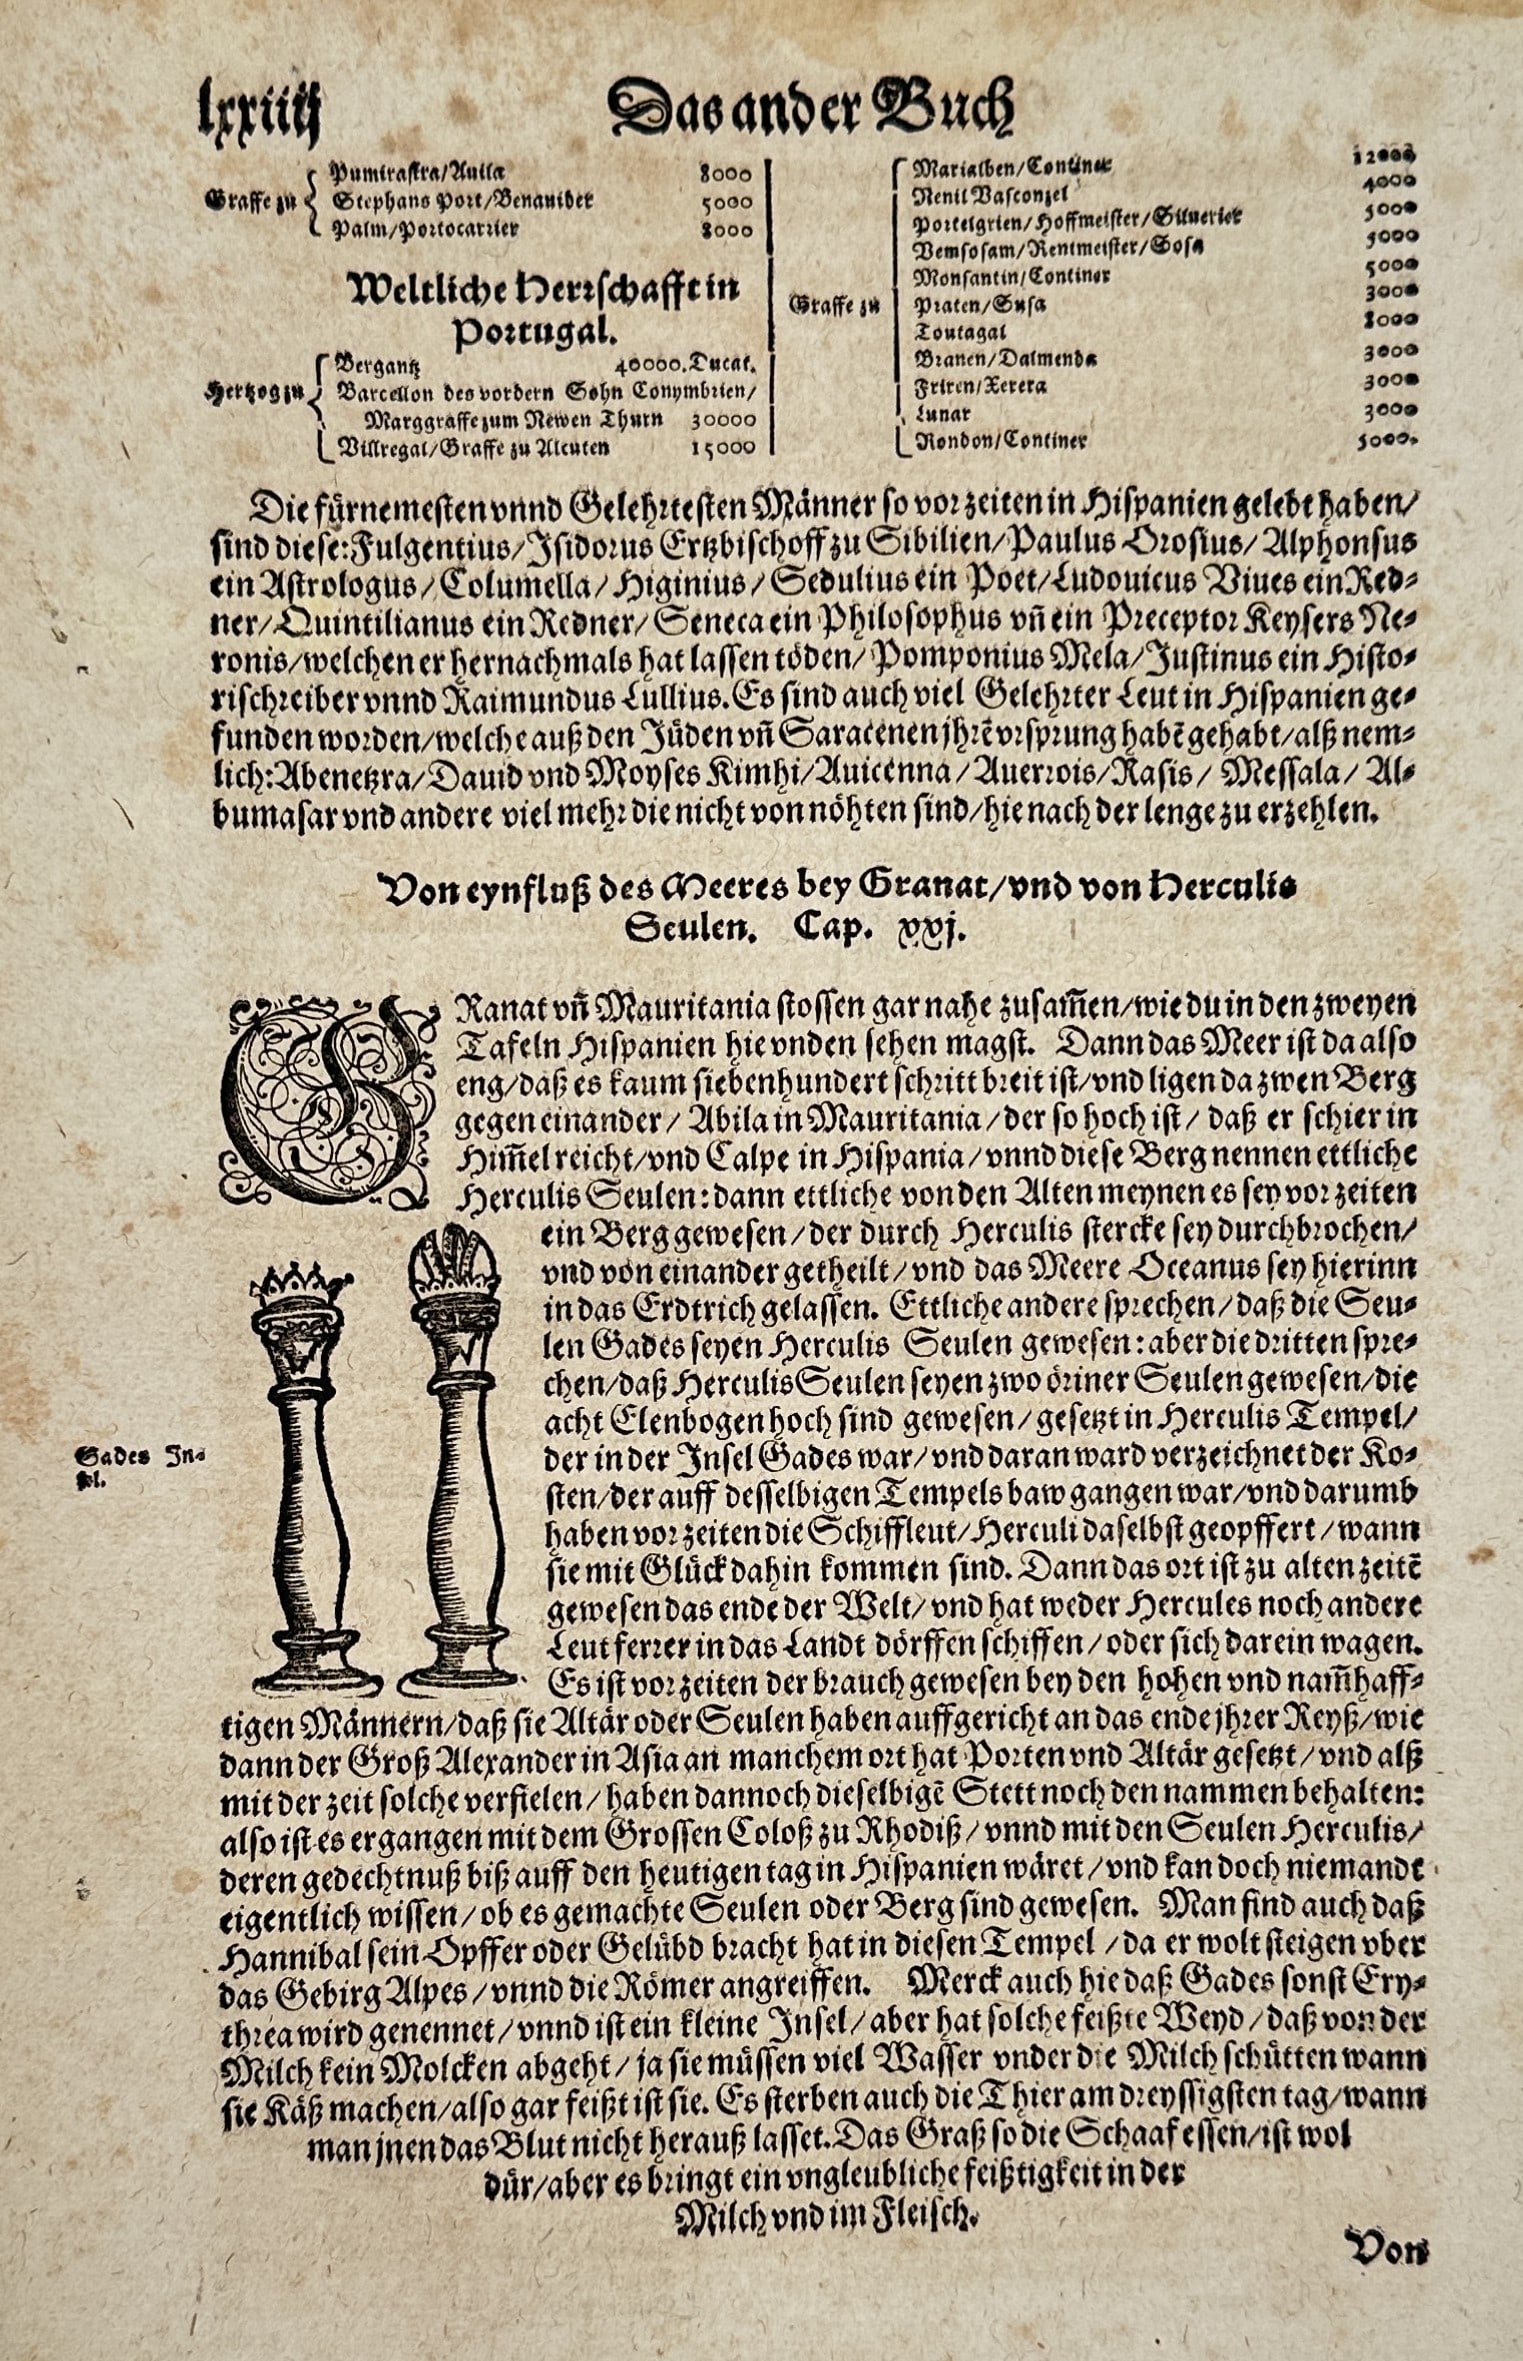 lxxiiij
Das ander Buch
Graffe zu
Pumirastra/Auila 8000
Stephans Port/Benauider 5000
Palm/Portocarrier 8000
Weltliche Herrschafft in
Portugal.
Hertzog zu
Bergantz 40000. Ducat.
Barcellon des vordern Sohn Conymbrien/
Marggraffe zum Newen Thurn 30000
Villregal/Graffe zu Alcuten 15000
Graffe zu
Marialben/Continer 12000
Nenil Vasconzel 4000
Portelgrien/Hoffmeister/Silverier 5000
Vemsosam/Rentmeister/Sosa 5000
Monsantin/Continer 5000
Praten/Susa 3000
Toutagal 8000
Branen/Dalmenda 3000
Friren/Xerera 3000
Lunar 3000
Rondon/Continer 5000.
Die fürnemesten vnnd Gelehrtesten Männer so vor zeiten in Hispanien gelebt haben/
sind diese: Fulgentius/Isidorus Ertzbischoff zu Sibilien/Paulus Orosius/Alphonsus
ein Astrologus/Columella/Higinius/Sedulius ein Poet/Ludouicus Viues ein Red-
ner/Quintilianus ein Redner/Seneca ein Philosophus vñ ein Preceptor Keysers Ne-
ronis/welchen er hernachmals hat lassen töden/Pomponius Mela/Justinus ein Histo-
rischreiber vnnd Raimundus Lullius. Es sind auch viel Gelehrter Leut in Hispanien ge-
funden worden/welche auß den Jüden vñ Saracenen jhrē vrsprung habē gehabt/alß nem-
lich: Abenetzra/Dauid vnd Moyses Kimhi/Auicenna/Auerrois/Rasis/Messala/Al-
bumasar vnd andere viel mehr die nicht von nöhten sind/hie nach der lenge zu erzehlen.
Von eynfluß des Meeres bey Granat/vnd von Herculis
Seulen. Cap. xxj.
GRanat vñ Mauritania stossen gar nahe zusam̃en/wie du in den zweyen
Tafeln Hispanien hie vnden sehen magst. Dann das Meer ist da also
eng/daß es kaum siebenhundert schritt breit ist/vnd ligen da zwen Berg
gegen einander/Abila in Mauritania/der so hoch ist/daß er schier in
Him̃el reicht/vnd Calpe in Hispania/vnnd diese Berg nennen ettliche
Herculis Seulen: dann ettliche von den Alten meynen es sey vor zeiten
ein Berg gewesen/der durch Herculis stercke sey durchbrochen/
vnd von einander getheilt/vnd das Meere Oceanus sey hierinn
in das Erdtrich gelassen. Ettliche andere sprechen/daß die Seu-
len Gades seyen Herculis Seulen gewesen: aber die dritten spre-
chen/daß Herculis Seulen seyen zwo öriner Seulen gewesen/die
acht Elenbogen hoch sind gewesen/gesetzt in Herculis Tempel/
Gades In-
sel.
der in der Insel Gades war/vnd daran ward verzeichnet der Ko-
sten/der auff desselbigen Tempels baw gangen war/vnd darumb
haben vor zeiten die Schiffleut/Herculi daselbst geopffert/wann
sie mit Glück dahin kommen sind. Dann das ort ist zu alten zeitē
gewesen das ende der Welt/vnd hat weder Hercules noch andere
Leut ferrer in das Landt dörffen schiffen/oder sich darein wagen.
Es ist vor zeiten der brauch gewesen bey den hohen vnd nam̃haff-
tigen Männern/daß sie Altär oder Seulen haben auffgericht an das ende jhrer Reyß/wie
dann der Groß Alexander in Asia an manchem ort hat Porten vnd Altär gesetzt/vnd alß
mit der zeit solche verfielen/haben dannoch dieselbigē Stett noch den nammen behalten:
also ist es ergangen mit dem Grossen Coloß zu Rhodiß/vnnd mit den Seulen Herculis/
deren gedechtnuß biß auff den heutigen tag in Hispanien wäret/vnd kan doch niemandt
eigentlich wissen/ob es gemachte Seulen oder Berg sind gewesen. Man find auch daß
Hannibal sein Opffer oder Gelübd bracht hat in diesen Tempel/da er wolt steigen vber
das Gebirg Alpes/vnnd die Römer angreiffen. Merck auch hie daß Gades sonst Ery-
threa wird genennet/vnnd ist ein kleine Insel/aber hat solche feißte Weyd/daß von der
Milch kein Molcken abgeht/ja sie müssen viel Wasser vnder die Milch schütten wann
sie Käß machen/also gar feißt ist sie. Es sterben auch die Thier am dreyssigsten tag/wann
man jnen das Blut nicht herauß lasset. Das Graß so die Schaaf essen/ist wol
dür/aber es bringt ein vngleubliche feißtigkeit in der
Milch vnd im Fleisch.
Von